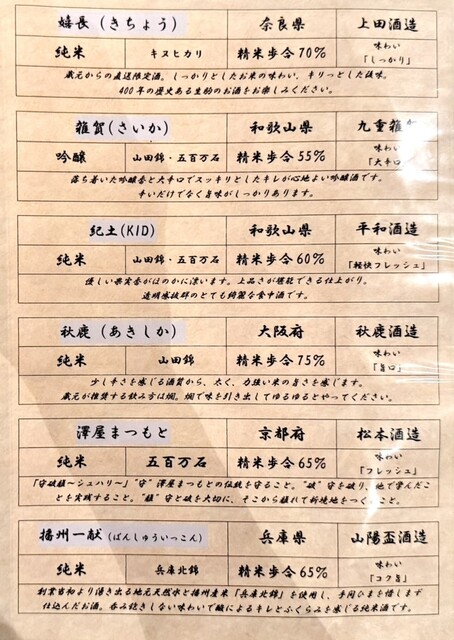 嬉長（きちょう） 奈良県 上田酒造
純米 キヌヒカリ 精米歩合70% 味わい「しっかり」
蔵元からの直送限定酒。しっかりとしたお米の味わい、キリっとした後味。
400年の歴史ある生駒のお酒をお楽しみください。
雑賀（さいか） 和歌山県 九重雑賀
吟醸 山田錦・五百万石 精米歩合55% 味わい「大辛口」
落ち着いた吟醸香と大辛口でスッキリとしたキレが心地よい吟醸酒です。
辛いだけでなく旨味がしっかりあります。
紀土(KID) 和歌山県 平和酒造
純米 山田錦・五百万石 精米歩合60% 味わい「軽快フレッシュ」
優しい果実香がほのかに漂います。上品さが堪能できる仕上がり。
透明感抜群のとても綺麗な食中酒です。
秋鹿（あきしか） 大阪府 秋鹿酒造
純米 山田錦 精米歩合75% 味わい「旨口」
少し辛さを感じる酒質から、太く、力強い米の旨さを感じます。
蔵元が推奨する飲み方は燗。燗で味を引き出してゆるゆるとやってください。
澤屋まつもと 京都府 松本酒造
純米 五百万石 精米歩合65% 味わい「フレッシュ」
「守破離〜シュハリ〜」"守"澤屋まつもとの伝統を守ること。"破"守を破り、他で学んだこ
とを実践すること。"離"守と破を大切に、そこから離れて新境地をつくること。
播州一献（ばんしゅういっこん） 兵庫県 山陽盃酒造
純米 兵庫北錦 精米歩合65% 味わい「コク旨」
創業当初より湧き出る地元天然水と播州産米「兵庫北錦」を使用し、手間ひまを惜しまず
仕込んだお酒。呑み飽きしない味わいで酸によるキレとふくらみを感じる純米酒です。